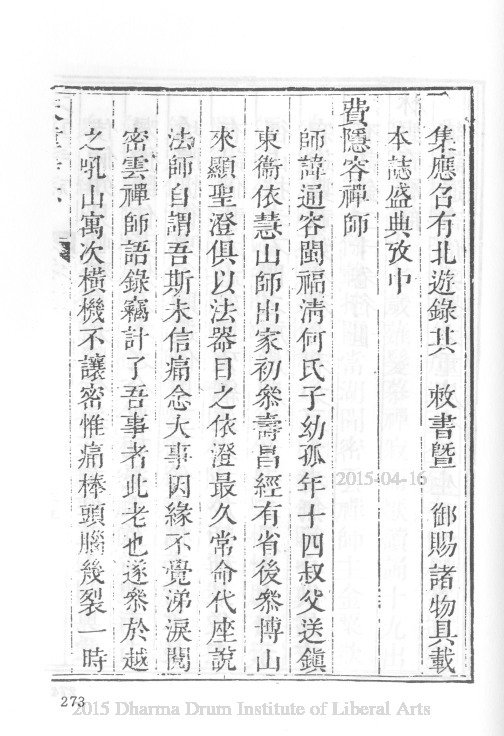 集應召有北遊錄其　敕書暨　御賜諸物具載
本誌盛典攷中
費隱容禪師
師諱通容閩福清何氏子幼孤年十四叔父送鎮
東衞依慧山師出家初叅壽昌經有省後叅博山
來顯聖澄俱以法器目之依澄最久常命代座說
法師自謂吾斯未信痛念大事因緣不覺涕淚閱
密雲禪師語錄竊計了吾事者此老也遂叅於越
之吼山寓次橫機不讓密惟痛棒頭腦幾裂一時
2015-04-16
273
2015 Dharma Drum Institute of Liberal Arts